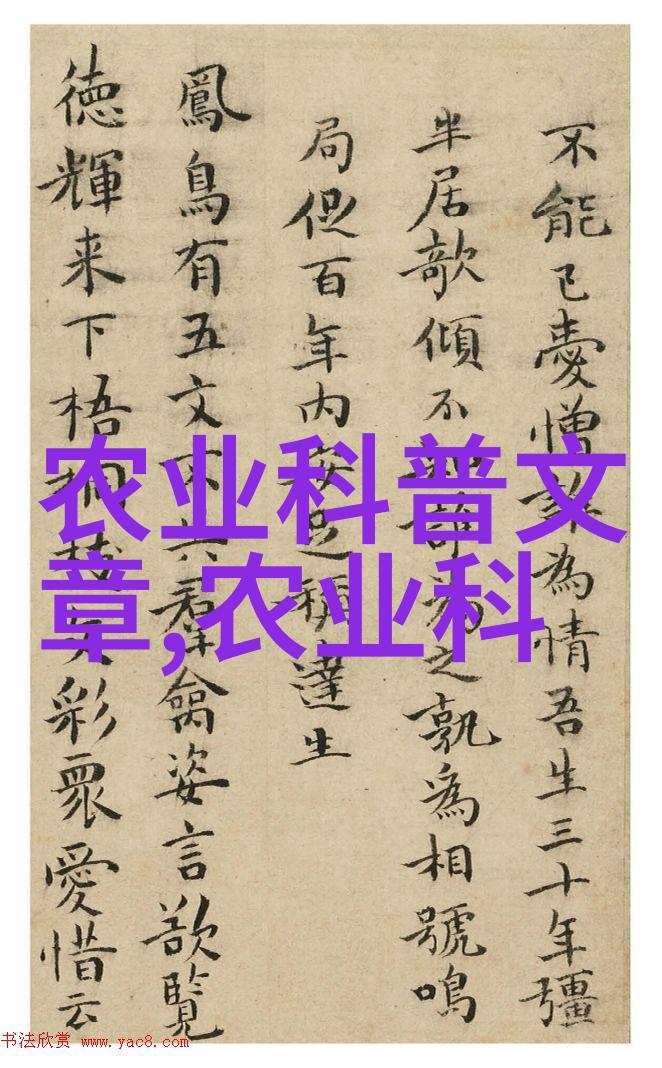 不能已憂憎
為情吾生三十年彊
半居欹傾不
之孰為相號鳴
局促百年内
稱達生
鳳鳥有五文
羣禽姿言欲覽
德輝来下梧
彩眾愛惜云
农业科普文
章,农业科
书法欣赏 www.yac8.com